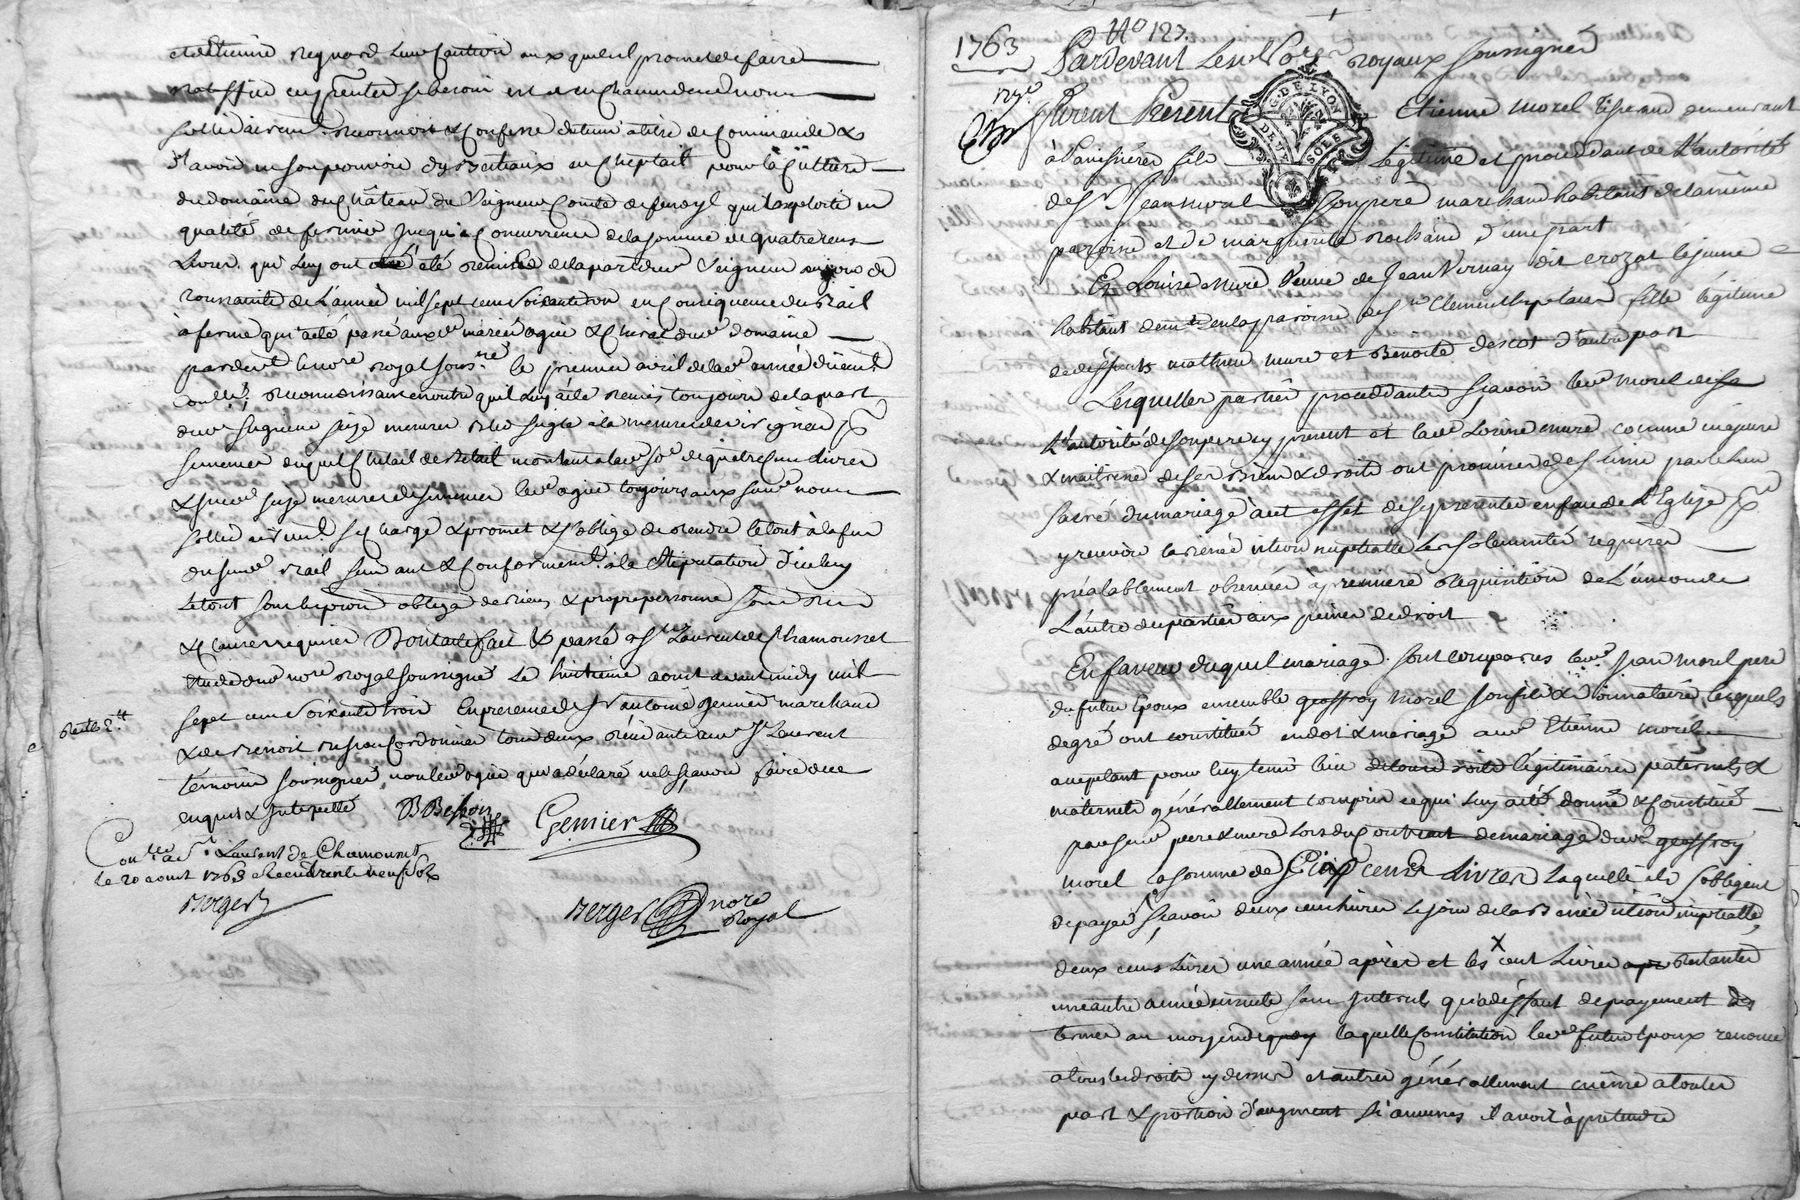 et Etienne Regnard leur caution auxquels il promet de faire
ratiffier ces presentes
sollidairement reconnoit & confesse detenir a titre de commande &
avoir en son pouvoir des Bestiaux en cheptail pour la culture
du domaine du Château du Seigneur Comte de qu'il exploite en
qualité de fermier jusqu'à Concurrence de la somme de quatre cens
Livres qui luy ont été remises de la part dud. Seigneur au jour de
Toussaints de L'année mil sept cens soixante en consequence du Bail
à ferme qui a été passé aud. dud. domaine
pardevt le nore royal souss.né le premier avril de lad. année duement
Coll.é, reconnoissant encore qu'il luy a été remis toujours de la part
dud. Seigneur seize mesures bled seigle à la mesure de
semence duquel Chetail de Betail montant a lad. so.e de quatre cens livres
& seize mesures de semence led. ogier toujours aux susd. noms
sollidairement se charge & promet & s'oblige de rendre le tout à la fin
dud. Bail suivant & conformemt. à la Stipulation d'icelui
Le tout sous les peines obligé de biens & propre personne
& clauses requises Dont acte fait & passé à St Laurent de Chamousset
étude dud. nore Royal soussigné Le huitieme aoust avant midy mil
sept cens soixante trois En presence de Sr antoine Gennier marchand
& de Benoit Besson Cordonnier tous deux residants aud. St Laurent
témoins soussignés non led. ogier qui a déclaré ne le sçavoir faire de ce
enquis & interpellé BBesson Genier
Reste 2.tt
Con.lé à St Laurent de Chamousset
le 20 aout 1763 Recu trente neuf sols
Berger
Berger nore
Royal
No 123.
1763 Pardevant Les Nores royaux soussignés
G. DE LYON
DEUX SOLS
furent Présents Etienne morel tisserand demeurant
à Panissières fils Légitime et procédant de L'autorité
de Sr Jean morel son père marchand habitant de la même
paroisse et de marguerite d'une part
Et Louise mure Veuve de Jean Vernay dit crozat le jeune
habitant demte en la paroisse de St Clement les places fille légitime
de deffunts mathieu mure et Benoite Descos d'autre part
Lesquelles parties procédantes sçavoir led. morel de
L'autorité de son père cy present et lad. Louise mure comme majeure
& maitresse de ses Biens & droits ont promis de s'unir par le lien
sacré du mariage à cet effet de se presenter en face de L'Eglise
y recevoir la Bénédiction nuptialle Les solemnités requises
préalablement observées à première Requisition de L'un ou de
L'autre des parties aux peines de droit
En faveur duquel mariage sont comparus led. Jean morel père
du futur Epoux ensemble geoffroy morel son fils & donnataire, lesquels
de gré ont constitué en dot & mariage aud. Etienne morel
acceptant pour luy tenir lieu de tous droits légitimaires paternels &
maternels générallement compris ce qui luy a été donné & constitué
par ses père & mère Lors du contract de mariage dud. geoffroy
morel La somme de Cinq cens Livres Laquelle ils s'obligent
de payer sçavoir deux cens livres le jour de la Bénédiction nuptialle,
deux cens Livres une année après et les cent Livres restantes
une autre année ensuite sans Interets qu'à deffaut de payement des
termes au moyen de quoy laquelle Constitution led. futur Epoux renonce
à tous les droits cy dessus et autres générallement même a toutes
part & portion d'augment Si aucunes il avoit à prétendre